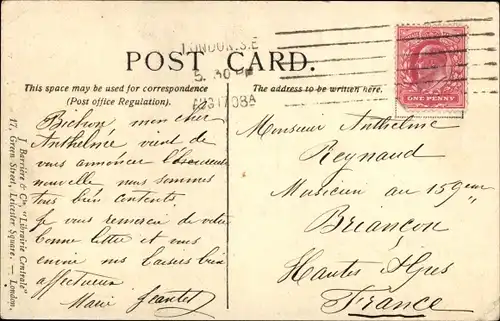 LONDON. S.E
5. 30 PM
AUG 17 08 A
POST CARD.
This space may be used for correspondence
(Post office Regulation).
The address to be written here.
ONE PENNY
Bichon mon cher
Anthelme vient de
vous annoncer l'excellente
nouvelle nous sommes
tous bien contents.
Je vous remercie de votre
bonne lettre et vous
envoie mes baisers bien
affectueux
Marie
Monsieur Anthelme
Reynaud
Musicien au 159eme
Briançon
Hautes Alpes
France
J. Barrière & Cie, "Librairie Centrale"
17, Green Street, Leicester Square. — London.